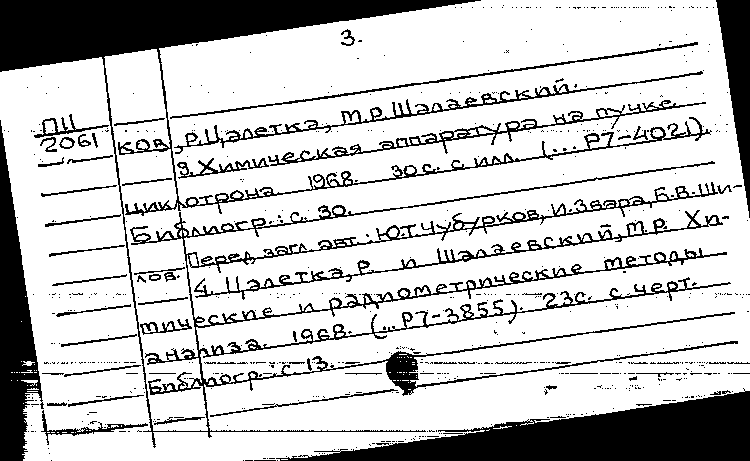 3.
П11
2061
ков, Р.Цалетка, М.Р.Шалаевский.
3. Химическая аппаратура на пучке
циклотрона 1968. 30 с. с илл. (... Р7-4021).
Библиогр.: с. 30.
Перед загл. авт.: Ю.Т.Чубурков, И.Звара, Б.В.Ши-
лов.
4. Цалетка, Р. и Шалаевский, М.Р. Хи-
мические и радиометрические методы
анализа. 1968. (... Р7-3855). 23с. с черт.
Библиогр.: с. 13.